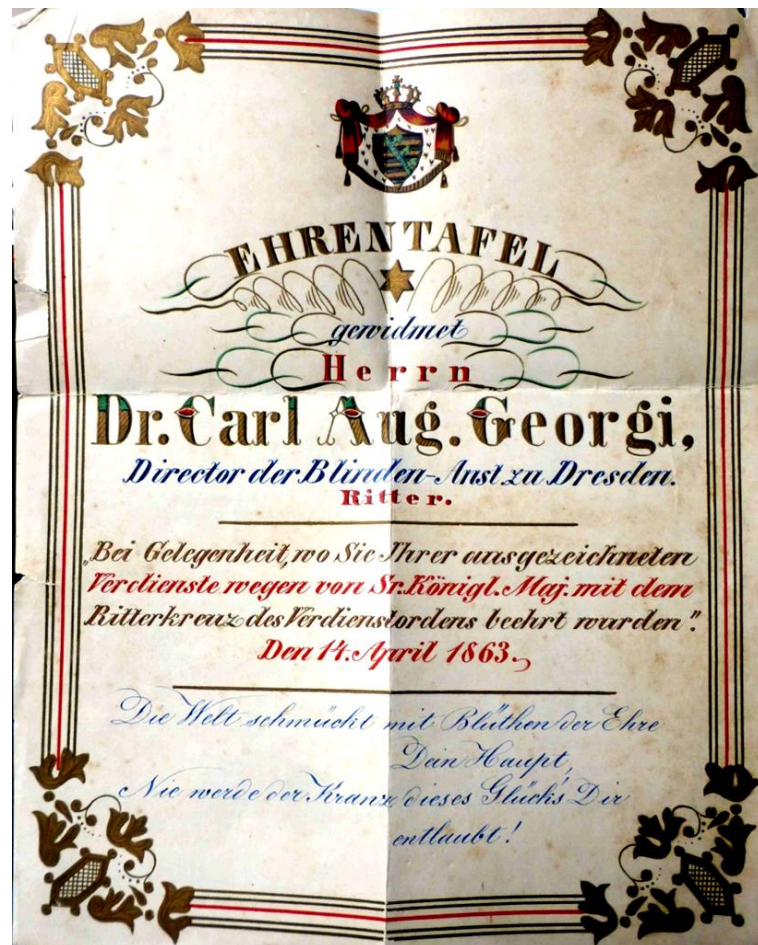 EHRENTAFEL
gewidmet
Herrn
Dr. Carl Aug. Georgi,
Director der Blinden-Anst zu Dresden.
Ritter.
„Bei Gelegenheit, wo Sie Ihrer ausgezeichneten
Verdienste wegen von Sr. Königl. Maj. mit dem
Ritterkreuz des Verdienstordens beehrt wurden".
Den 14. April 1863.
Die Welt schmückt mit Blüthen der Ehre
Dein Haupt,
Nie werde der Kranz dieses Glücks Dir
entlaubt!